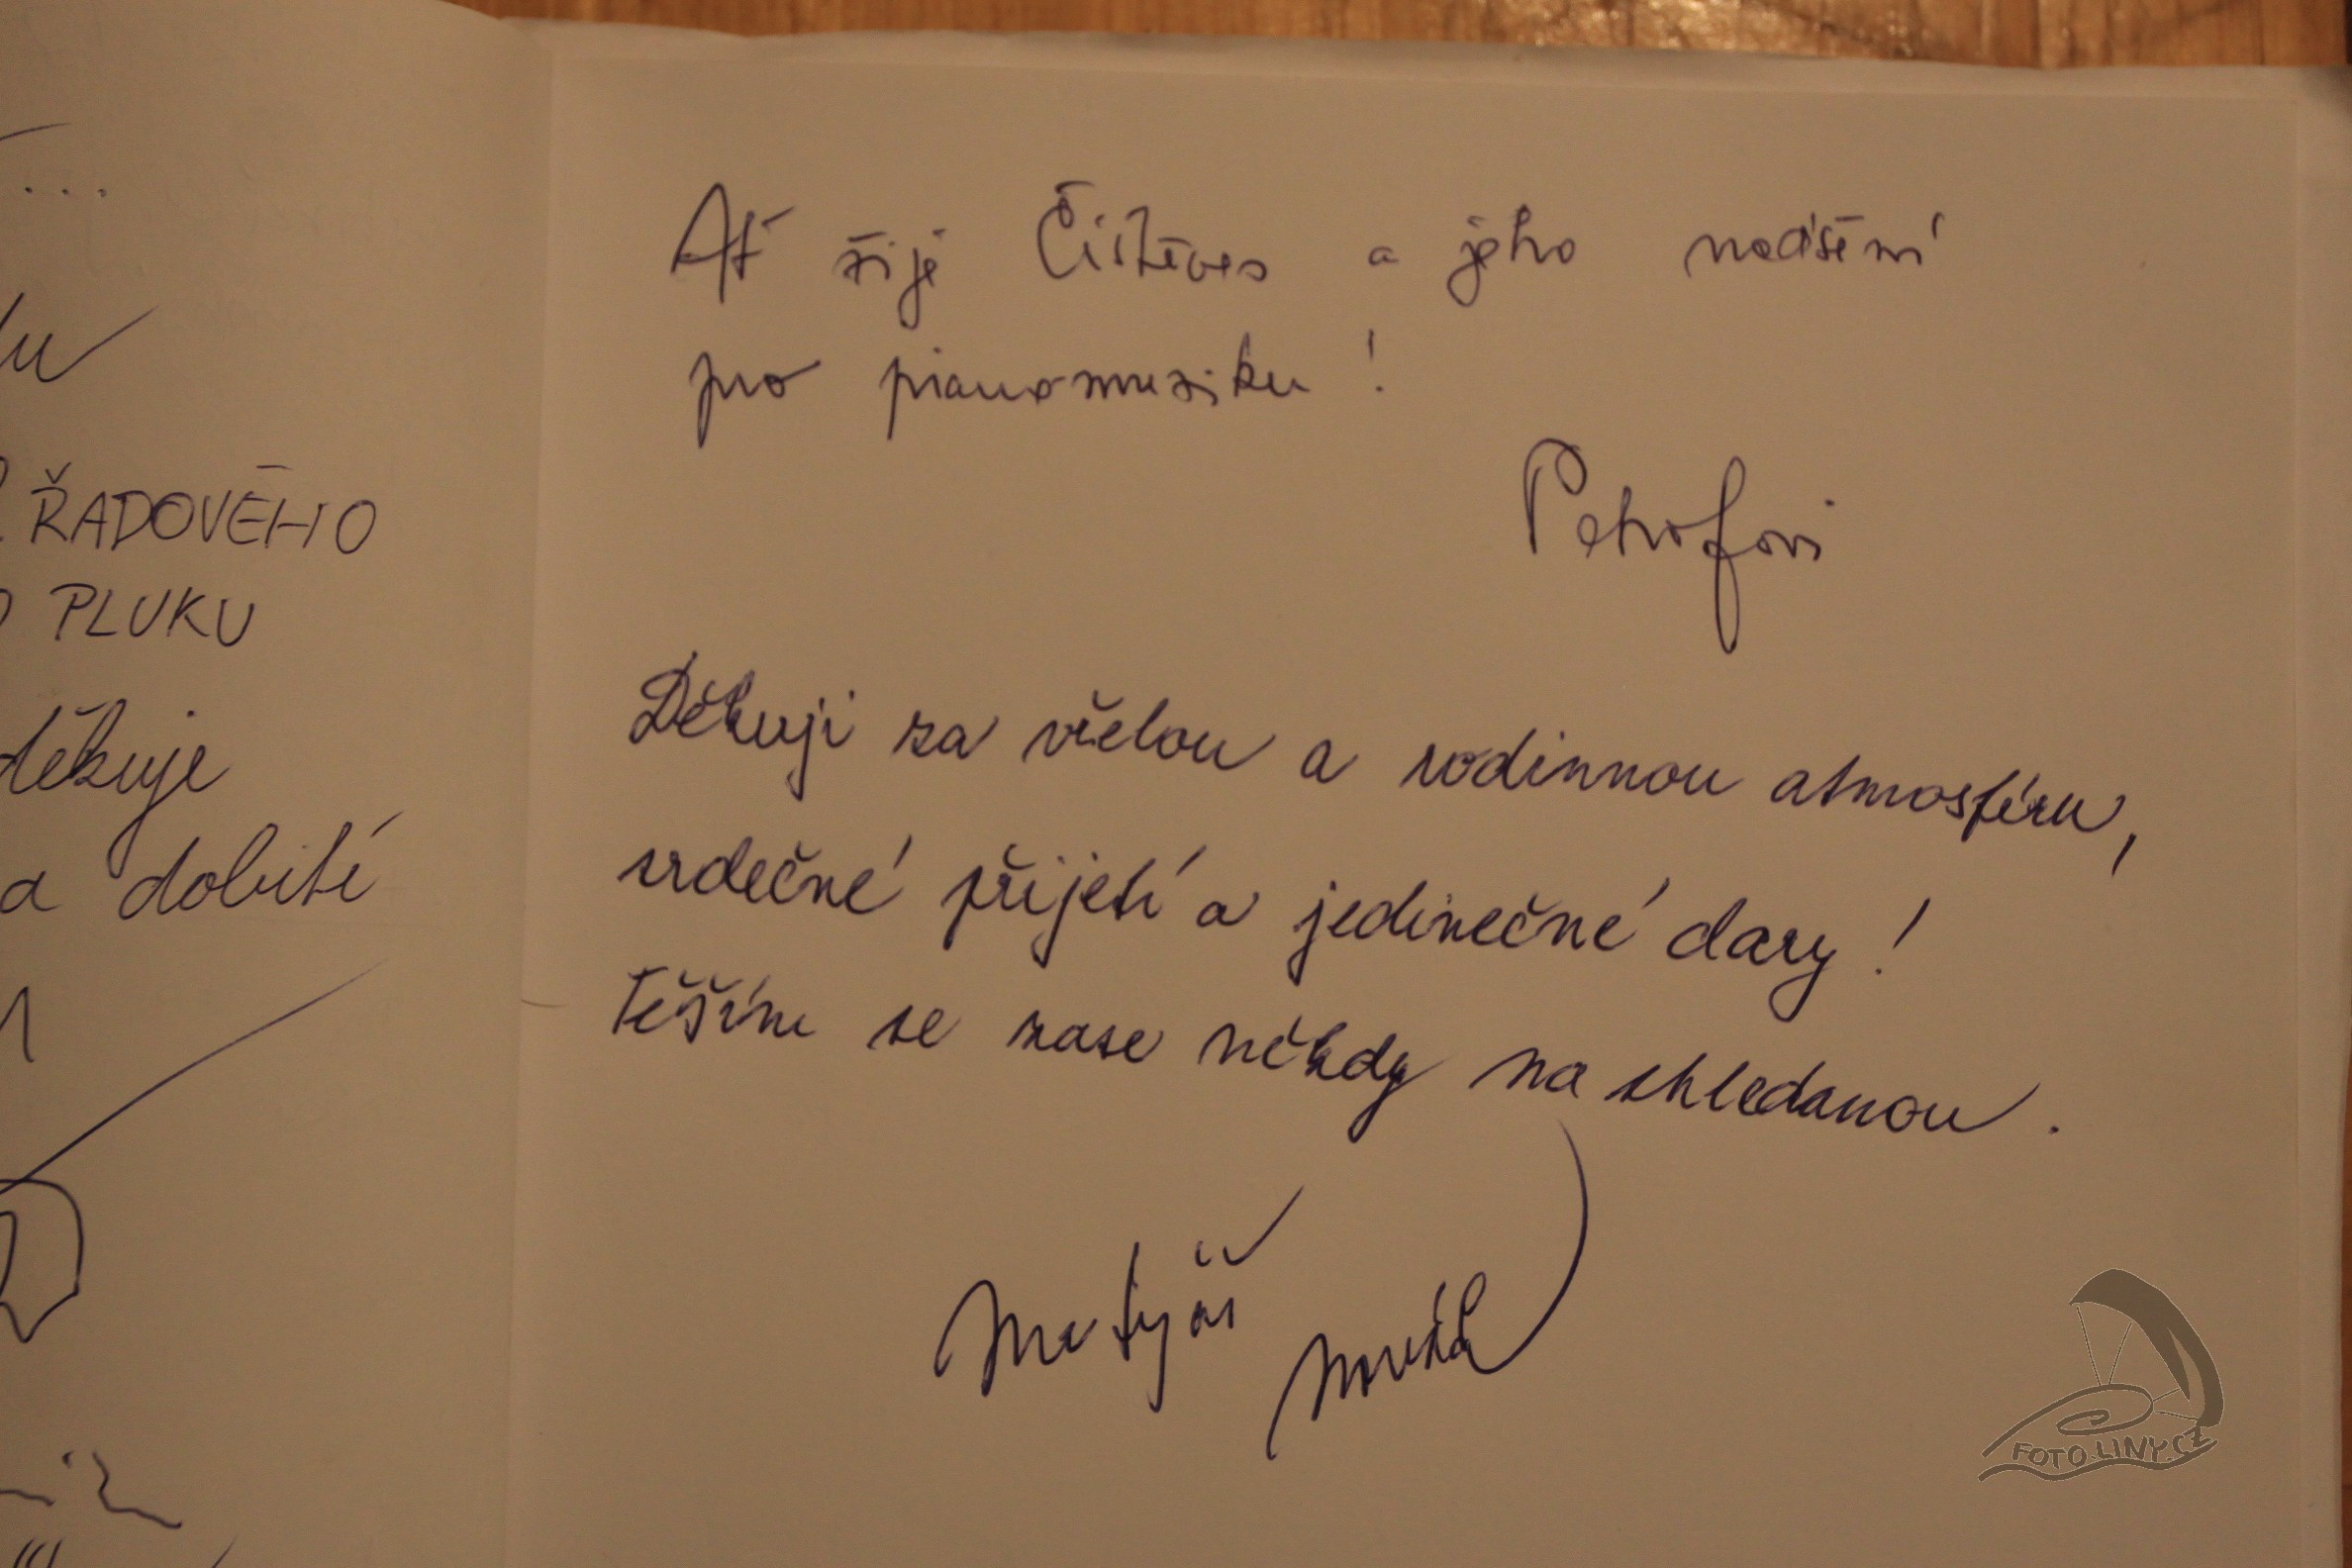 ...
ŘADOVÉHO
PLUKU
děkuje
a dobití
Ať žije Čistěves a jeho nadšení
pro pianomuziku!
Petrofovi
Děkuji za vřelou a rodinnou atmosféru,
srdečné přijetí a jedinečné dary!
Těším se zase někdy na shledanou.
Matyáš Novák
FOTO.LINY.CZ